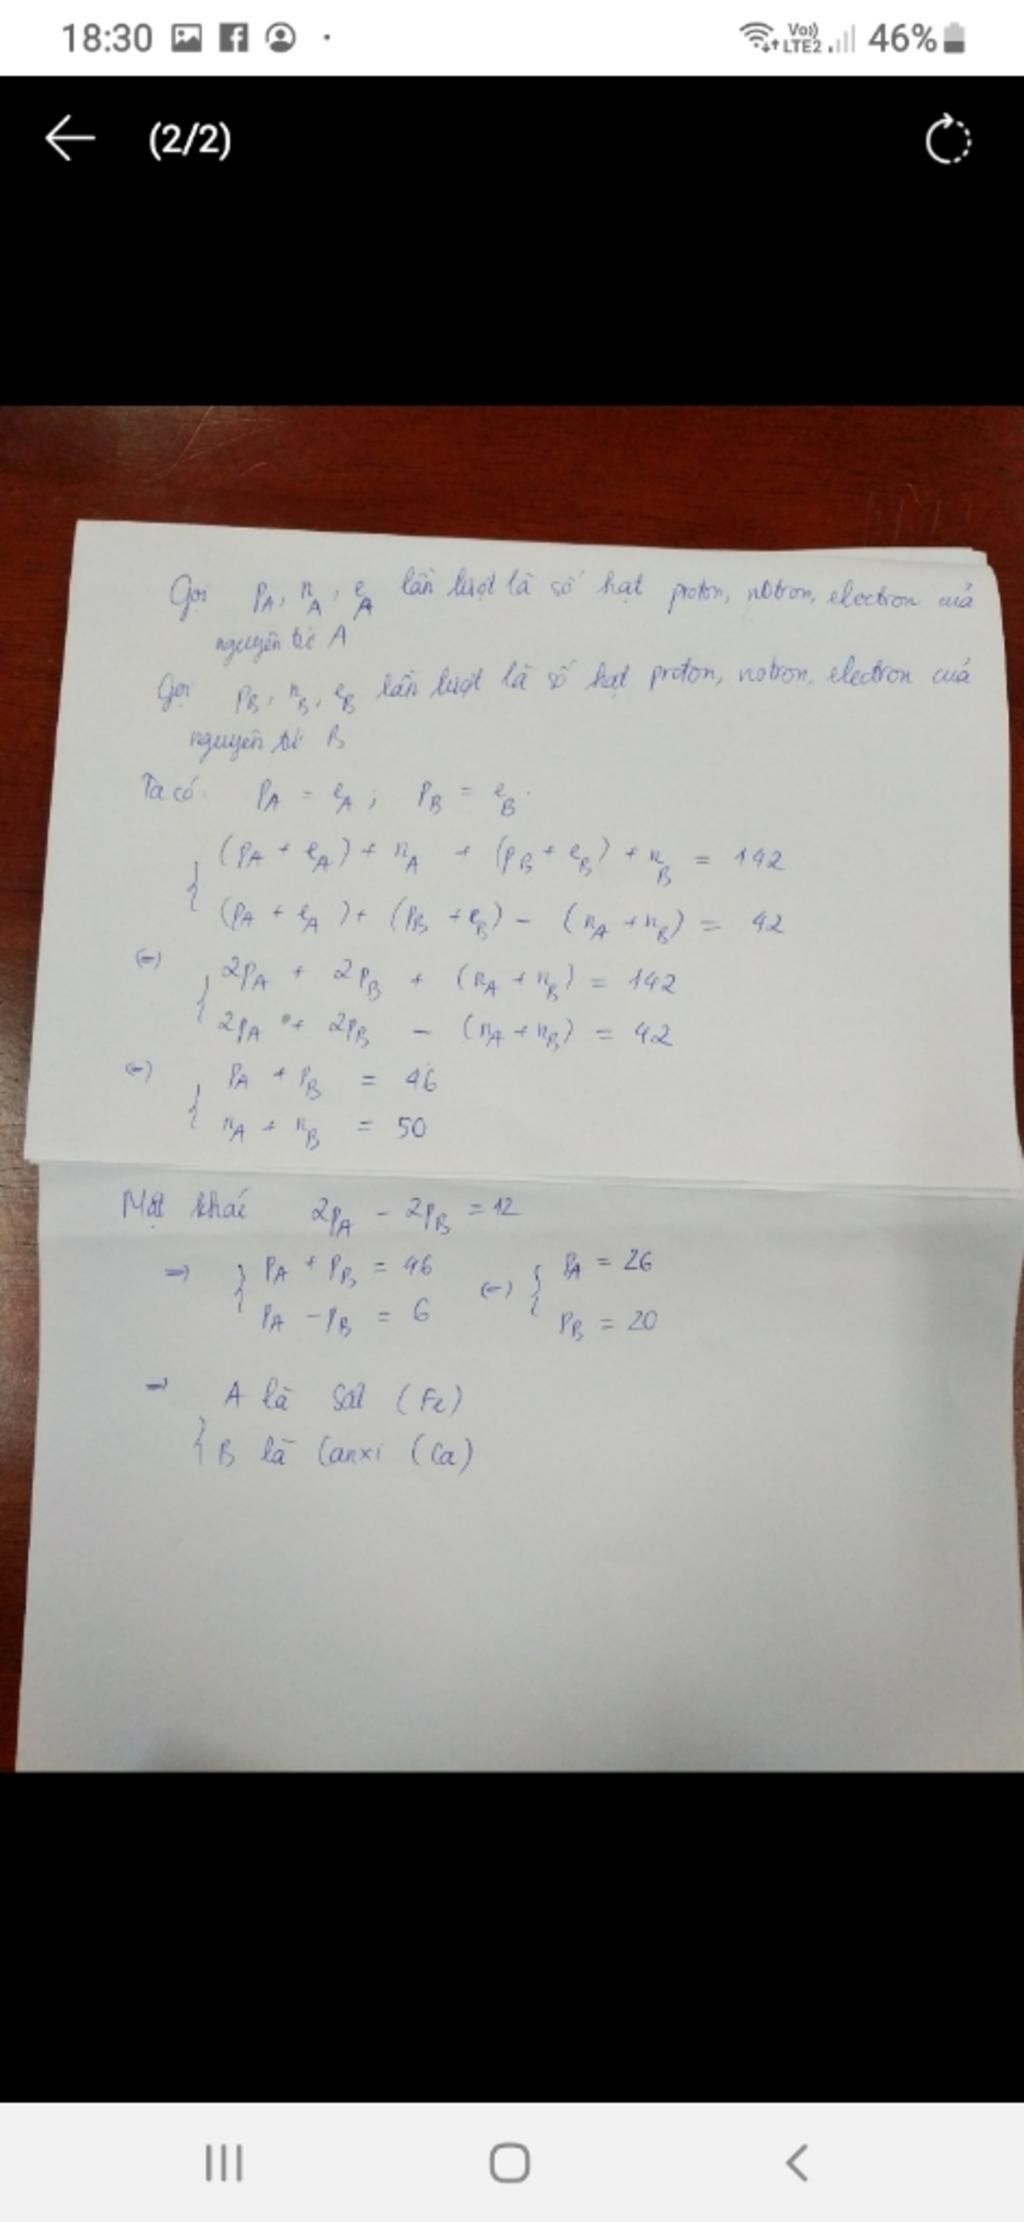 18:30
Vo)) LTE2 46%
(2/2)
Gọi pA, nA, eA lần lượt là số hạt proton, nơtron, electron của
nguyên tử A
Gọi pB, nB, eB lần lượt là số hạt proton, notron, electron cuả
nguyên tử B
Ta có: pA = eA ; pB = eB.
(pA + eA) + nA + (pB + eB) + nB = 142
(pA + eA) + (pB + eB) - (nA + nB) = 42
(=) 2pA + 2pB + (nA + nB) = 142
2pA + 2pB - (nA + nB) = 42
(=) pA + pB = 46
nA + nB = 50
Mặt khác 2pA - 2pB = 12
=) pA + pB = 46 (=) pA = 26
pA - pB = 6 pB = 20
=) A là Sắt (Fe)
B là Canxi (Ca)